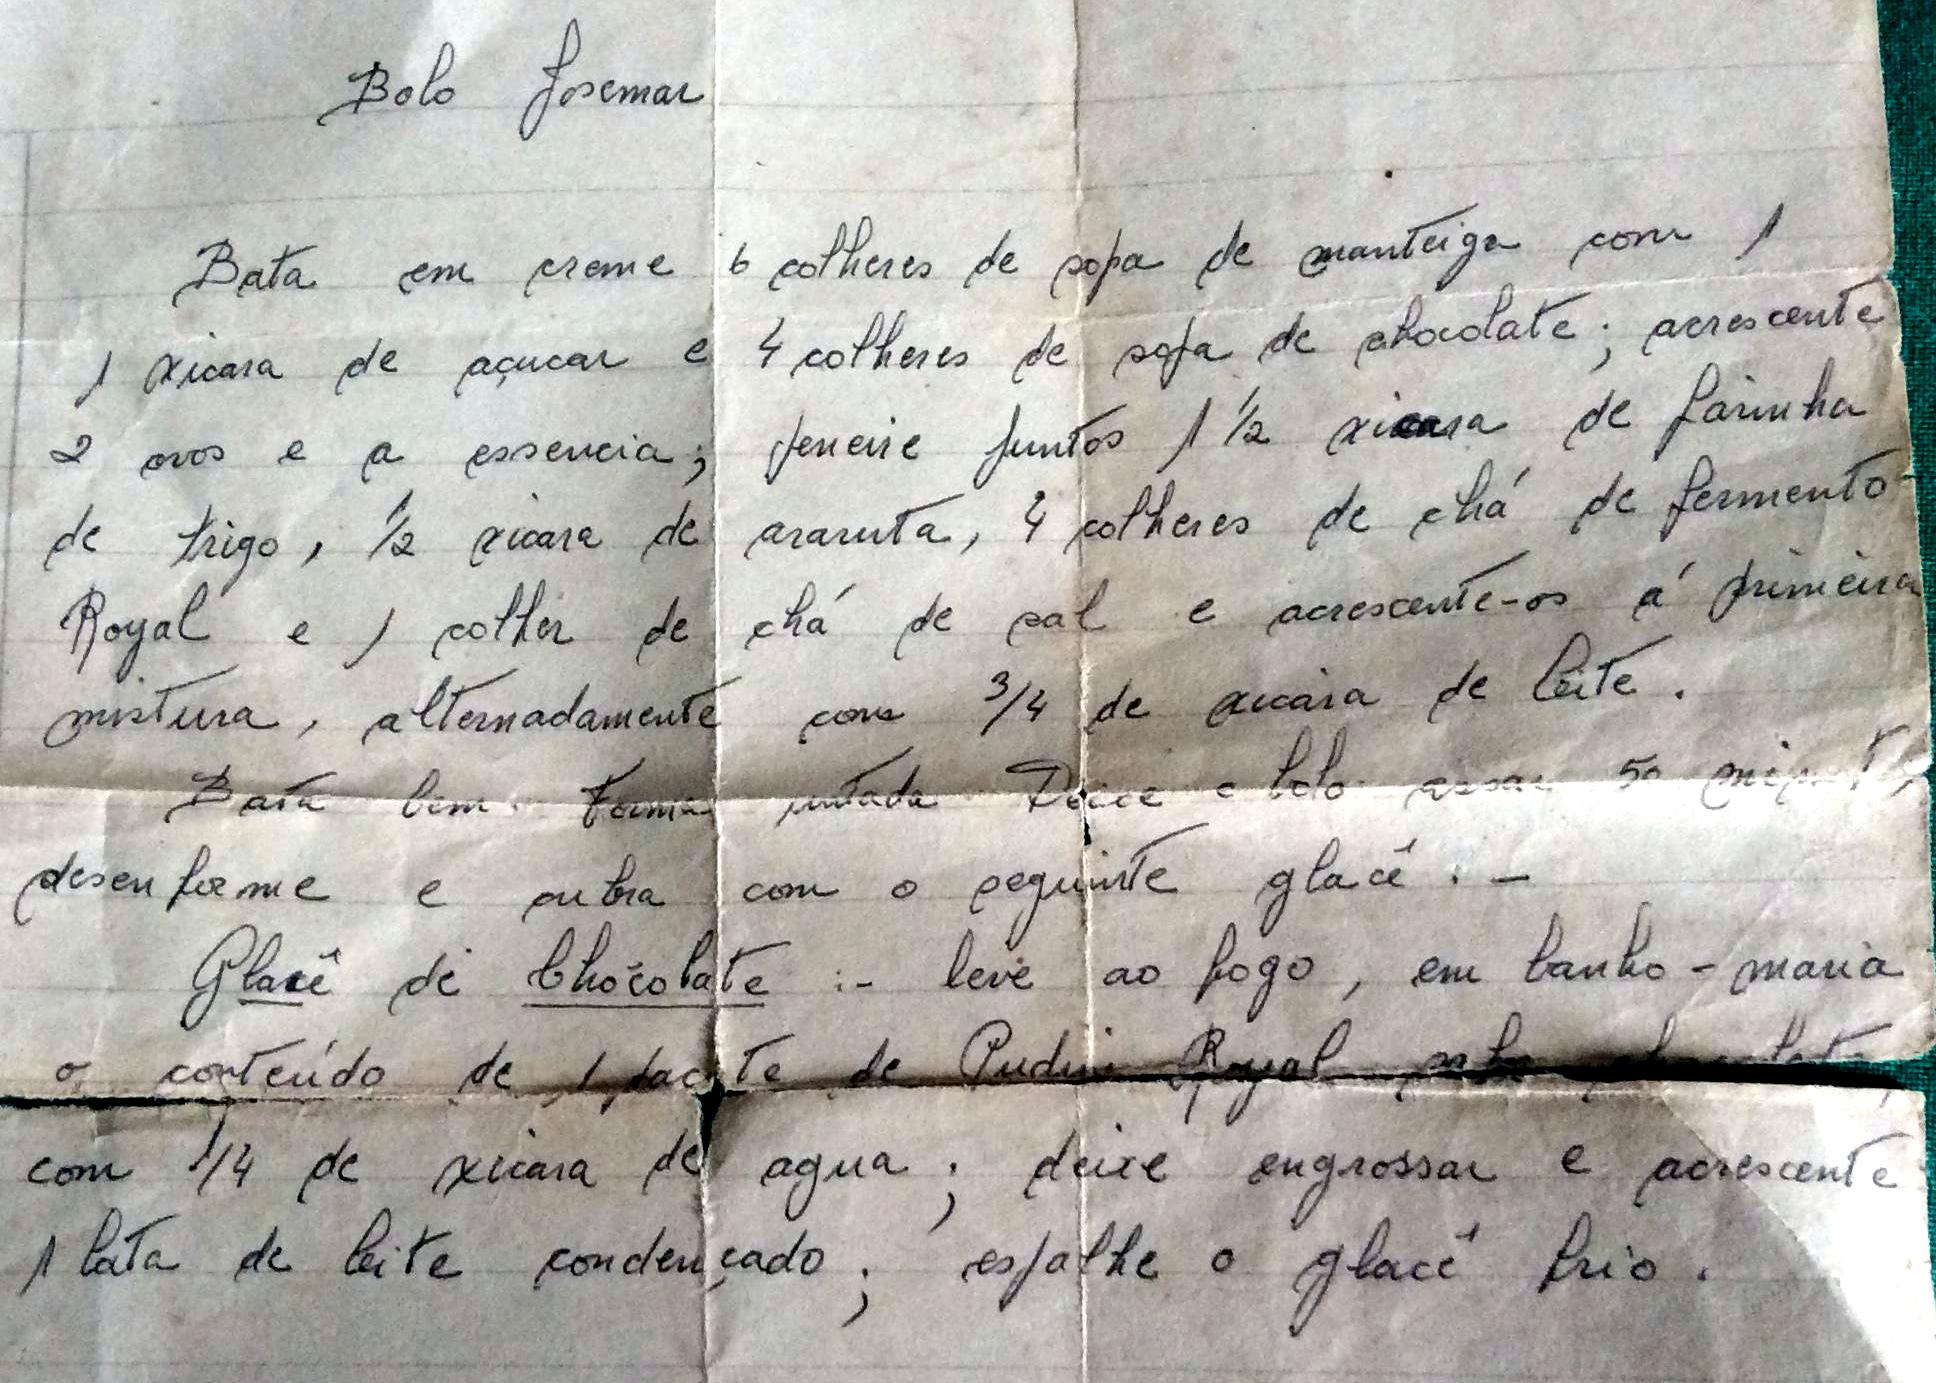 Bolo Josemar
Bata em creme 6 colheres de sopa de manteiga com 1
1 xicara de açucar e 4 colheres de sopa de chocolate; acrescente
2 ovos e a essencia; peneire juntos 1 1/2 xicara de farinha
de trigo, 1/2 xicara de araruta, 4 colheres de chá de fermento
Royal e 1 colher de chá de sal e acrescente-os á primeira
mistura, alternadamente com 3/4 de xicara de leite.
Bata bem. Forma untada Deixe o bolo assar 50 minutos,
desenforme e cubra com o seguinte glacê. -
Glacê de Chocolate :- leve ao fogo, em banho-maria
o conteúdo de 1 pacote de Pudim Royal chocolate,
com 1/4 de xicara de agua; deixe engrossar e acrescente
1 lata de leite condençado; espalhe o glacê frio.